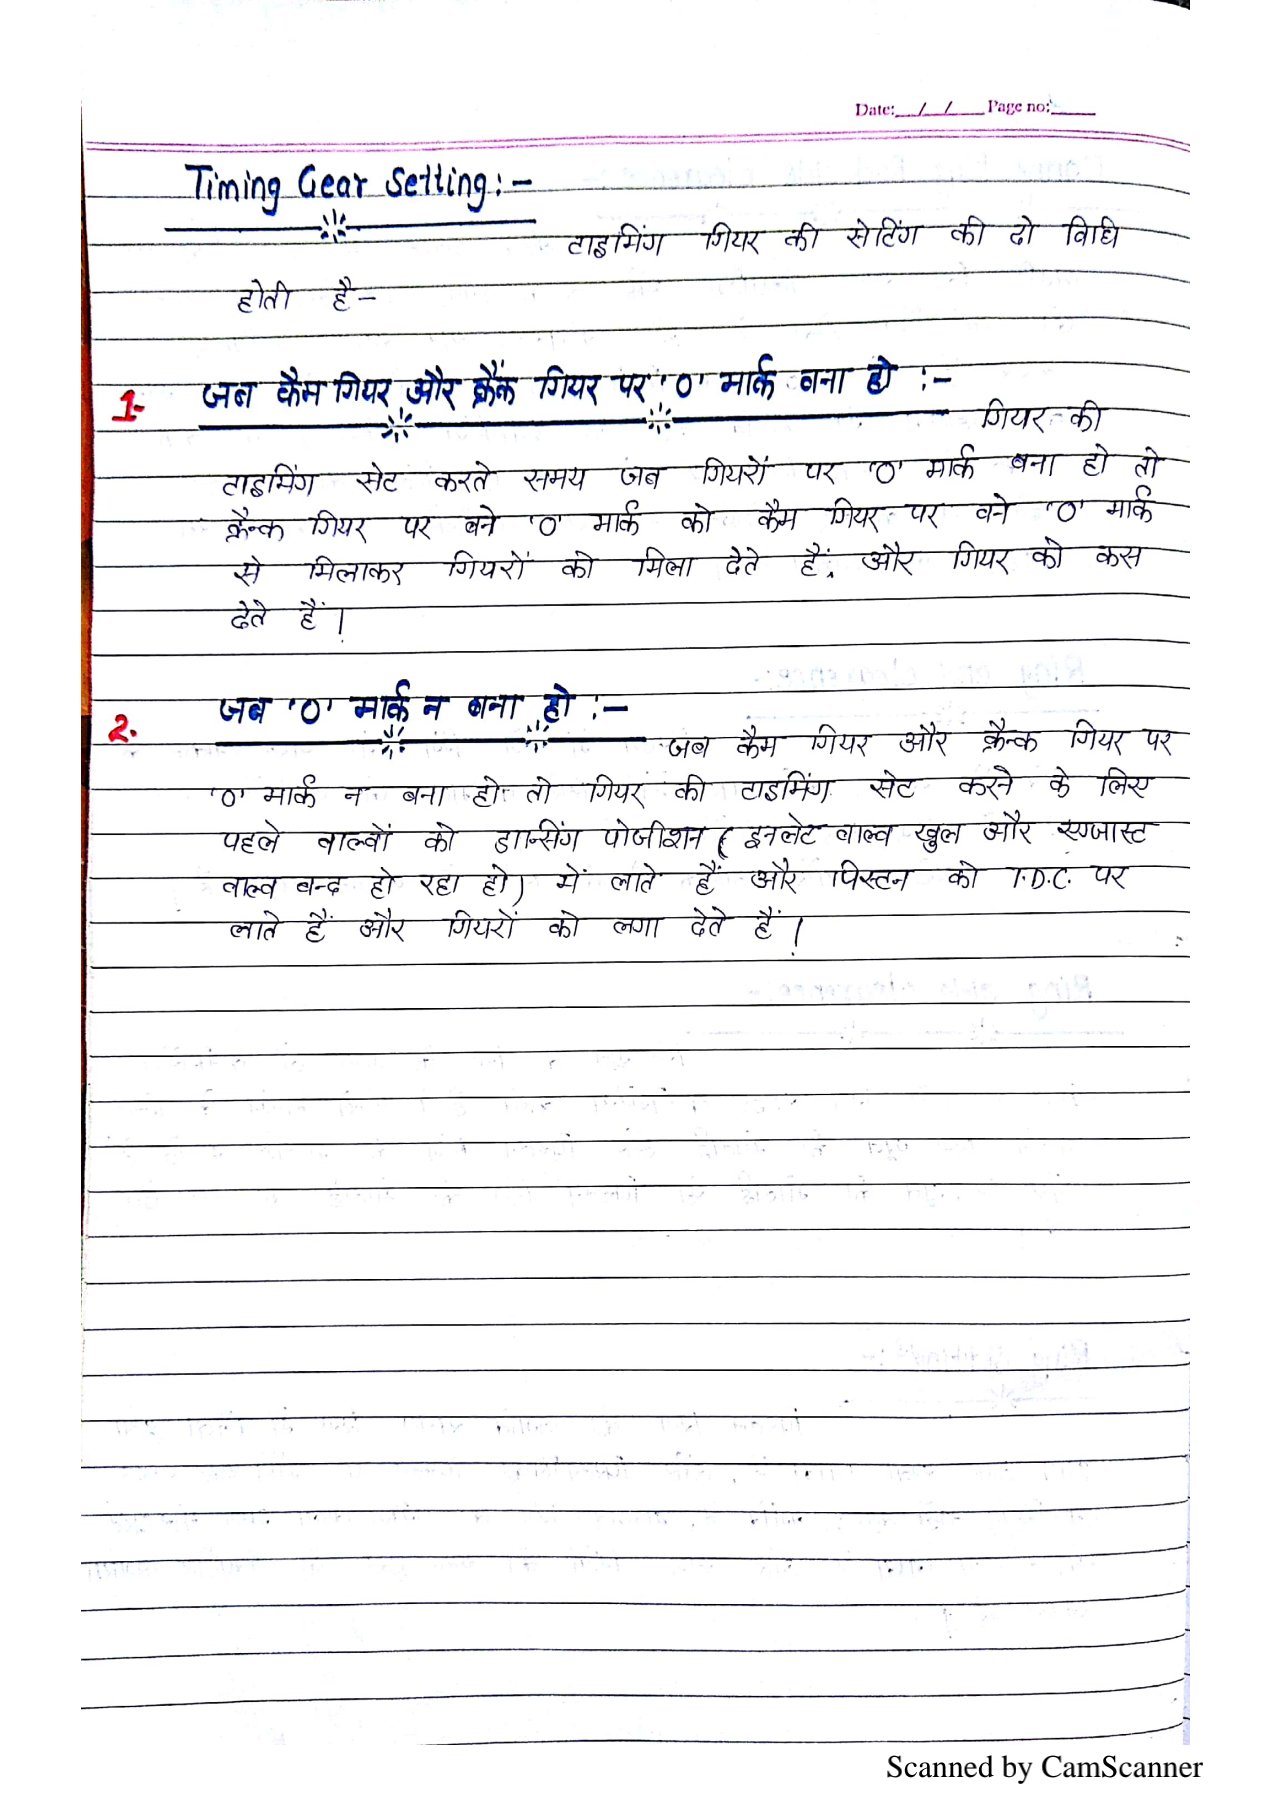 Date:__/__/____ Page no:_____
Timing Gear Setting:-
टाइमिंग गियर की सेटिंग की दो विधि
होती है-
1- जब कैम गियर और क्रैंक गियर पर '0' मार्क बना हो :-
गियर की
टाइमिंग सेट करते समय जब गियरों पर '0' मार्क बना हो तो
क्रैन्क गियर पर बने '0' मार्क को कैम गियर पर बने '0' मार्क
से मिलाकर गियरों को मिला देते हैं, और गियर को कस
देते हैं।
2. जब '0' मार्क न बना हो :-
जब कैम गियर और क्रैन्क गियर पर
'0' मार्क न बना हो तो गियर की टाइमिंग सेट करने के लिए
पहले वाल्वों को डान्सिंग पोजीशन ( इनलेट वाल्व खुल और एग्जास्ट
वाल्व बन्द हो रहा हो) में लाते हैं और पिस्टन को T.D.C. पर
लाते हैं और गियरों को लगा देते हैं।
Scanned by CamScanner